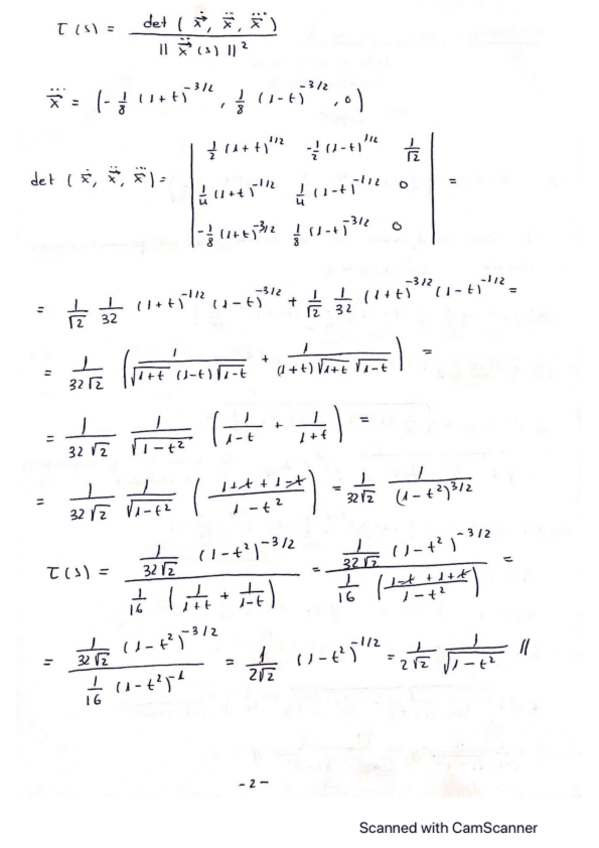 τ(s) = det ( ẋ⃗, ẍ⃗, x⃗⃛ ) / || ẍ⃗(s) ||²
x⃗⃛ = (-1/8 (1+t)^-3/2, 1/8 (1-t)^-3/2, 0)
det ( ẋ⃗, ẍ⃗, x⃗⃛ ) = | 1/2 (1+t)^1/2   -1/2 (1-t)^1/2   1/√2 |
| 1/4 (1+t)^-1/2   1/4 (1-t)^-1/2   0 | =
| -1/8 (1+t)^-3/2   1/8 (1-t)^-3/2   0 |
= 1/√2 1/32 (1+t)^-1/2 (1-t)^-3/2 + 1/√2 1/32 (1+t)^-3/2 (1-t)^-1/2 =
= 1/32√2 ( 1/(√1+t (1-t)√1-t) + 1/((1+t)√1+t √1-t) ) =
= 1/32√2 1/√1-t² ( 1/1-t + 1/1+t ) =
= 1/32√2 1/√1-t² ( (1+t+1-t)/(1-t²) ) = 1/32√2 1/(1-t²)^3/2
τ(s) = (1/32√2 (1-t²)^-3/2) / (1/16 ( 1/1+t + 1/1-t )) = (1/32√2 (1-t²)^-3/2) / (1/16 ( (1-t+1+t)/(1-t²) )) =
= (1/32√2 (1-t²)^-3/2) / (1/16 (1-t²)^-1) = 1/2√2 (1-t²)^-1/2 = 1/2√2 1/√1-t² //
-2-
Scanned with CamScanner